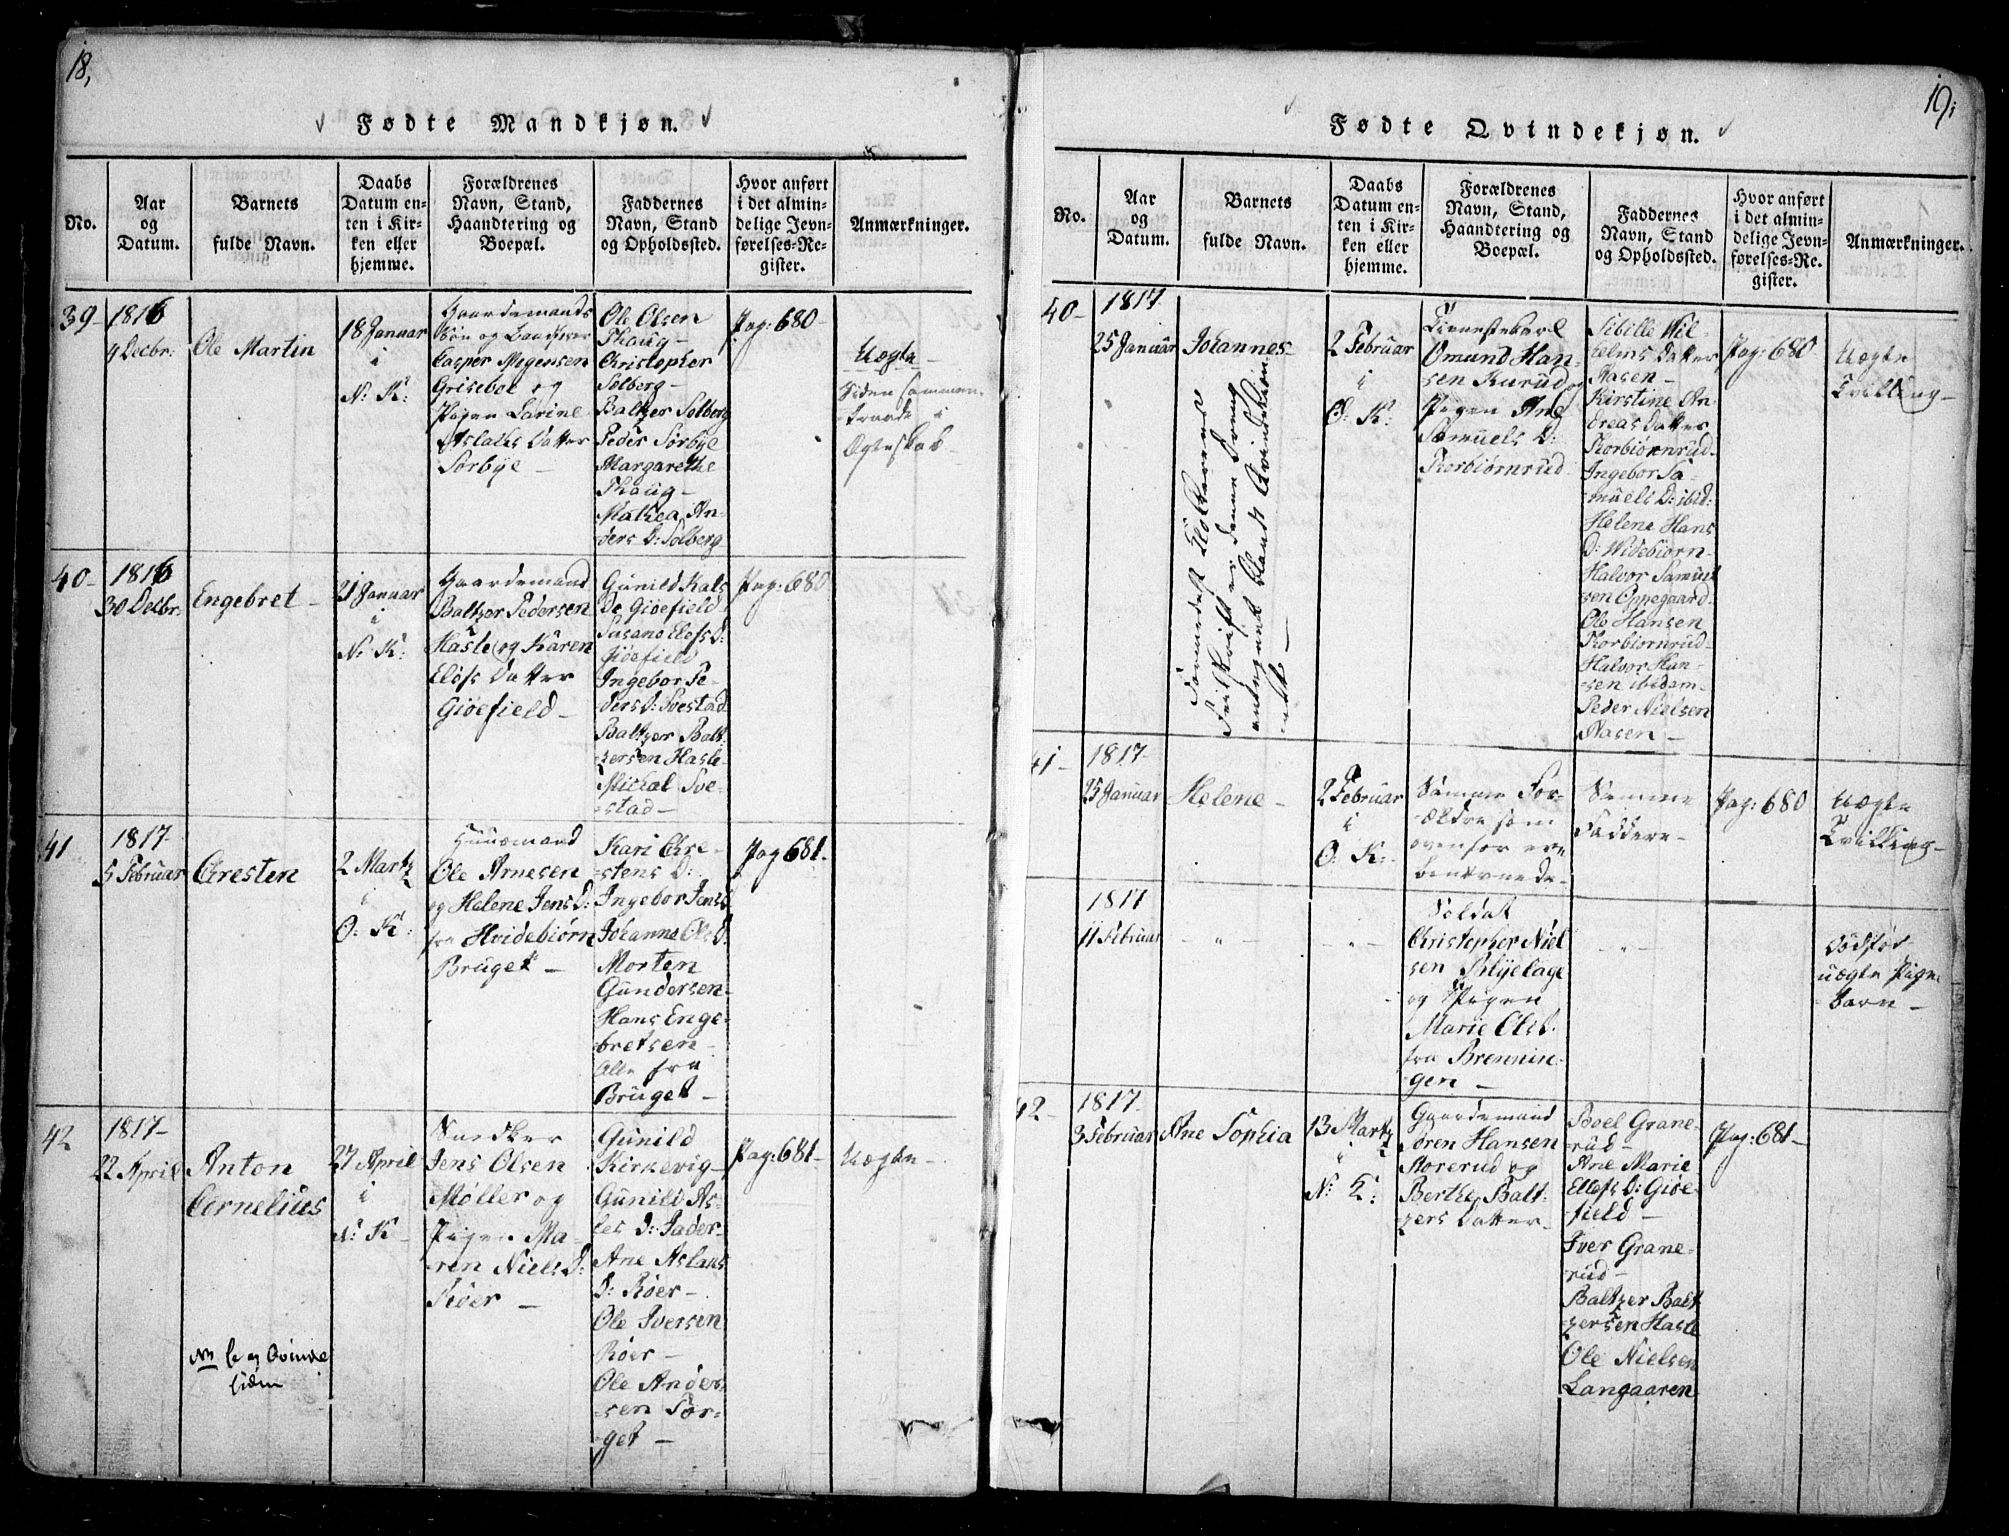 18,
Fødte Mandkjøn.
No.
Aar
og
Datum.
Barnets
fulde Navn.
Daabs
Datum en-
ten i Kir-
ken eller
hjemme.
Forældrenes
Navn, Stand,
Haandtering og
Boepæl.
Faddernes
Navn, Stand
og Opholdssted.
Hvor anført
i det almin-
delige Jevn-
førelses-Re-
gister.
Anmærkninger.
39-
1816
9 Decbr:
Ole Martin
18 Januar
i
N: K:
Gaardemands
Søn og
Casper Mogensen
Griseboe og
Pigen Larine
Aslaks Datter
Sorbye -
Ole Olsen
Thoug-
Christopher
Solberg-
Baltzer Solberg
Peder Sorbye
Margarethe
Thoug-
Mathea An-
ders D: Solberg
Pag: 680-
Uægte -
Siden sammen-
traadt i
Ægteskab -
40-
1816
30 Decbr:
Engebret -
21 Januar
i
N: K:
Gaardemand
Baltzer Pedersen
Hasle og Karen
Elofs Datter
Giøefield -
Gunild Kals
De Giøefield
Susano Elofs D:
Giøefield
Ingebor Pe-
ders D: Svestad
Baltzer Balt-
zersen Hasle-
Michal Sve-
stad-
Pag: 680
41
1817-
5 Februar
Chresten
2 Martz
i
O: K:
Huusmand
Ole Arnesen
og Helene Jens D:
fra Hvidebiørn
Bruget -
Kari Chre-
stens D:
Ingebor Jens D
Johanne Ols D:
Morten
Gundersen-
Hans Enge-
bretsen-
Alle fra
Bruget -
Pag 681-
42
1817-
22 April
Anton
Cornelius
27 April
i
N: K-
Snedker
Jens Olsen
Møller og
Pigen Ma-
ren Niels D:
Røer -
Gunild
Kirkevig-
Gunild As-
les D: Fader-
Ane Aslaks
D: Røer-
Ole Iversen
Røer-
Ole Ander-
sen Tor-
get -
Pag: 681-
Uægte -
19;
Fødte Qvindekjøn.
No.
Aar
og
Datum.
Barnets
fulde Navn.
Daabs
Datum en-
ten i Kir-
ken eller
hjemme.
Forældrenes
Navn, Stand,
Haandtering og
Boepæl.
Faddernes
Navn, Stand
og Opholdssted.
Hvor anført
i det almin-
delige Jevn-
førelses-Re-
gister.
Anmærkninger.
40-
1817
25 Januar
Johannes-
Formedelst Klokkerens
Feilskrift er denne Dreng
antegnet blandt Qvindekiøn-
net -
2 Februar
i
O: K:
Tienestekarl
Omund Han-
sen Kurud og
Pigen Ane
Samuels D:
Thorbiørnrud
Sibille Wil-
helms Datter
Aasen-
Kirstine An-
dreas Datter
Thorbiørnrud-
Ingebor Sa-
muels D: ibid:
Helene Hans
D: Widebiørn-
Halvor Samuel-
sen Oppegaard-
Ole Hansen
Thorbiornrud-
Halvor Han-
sen ibidem-
Peder Nielsen
Aasen -
Pag: 680
Uægte
Tvilling-
41-
1817-
25 Januar
Helene-
2 Februar
i
O. K:
Samme For-
ældre som
ovenfor ere
benævnede-
Samme
Faddere-
Pag: 680
Uægte
Tvilling-
1817
11 Februar
- " -
- " -
Soldat
Christopher Niel-
sen Blyelage
og Pigen
Marie Ols D.
fra Brennin-
gen -
- " -
Dødfød
uægte Pige-
Barn -
42-
1817-
3 Februar
Ane Sophia
13 Martz
i
N: K:
Gaardemand
Søren Hansen
Storerud og
Berthe Balt-
zers Datter-
Boel Grane-
rud-
Ane Marie
Ellefs D: Giøe-
field-
Iver Grane-
rud-
Baltzer Balt-
zersen Hasle
Ole Nielsen
Langaaren
Pag: 681-